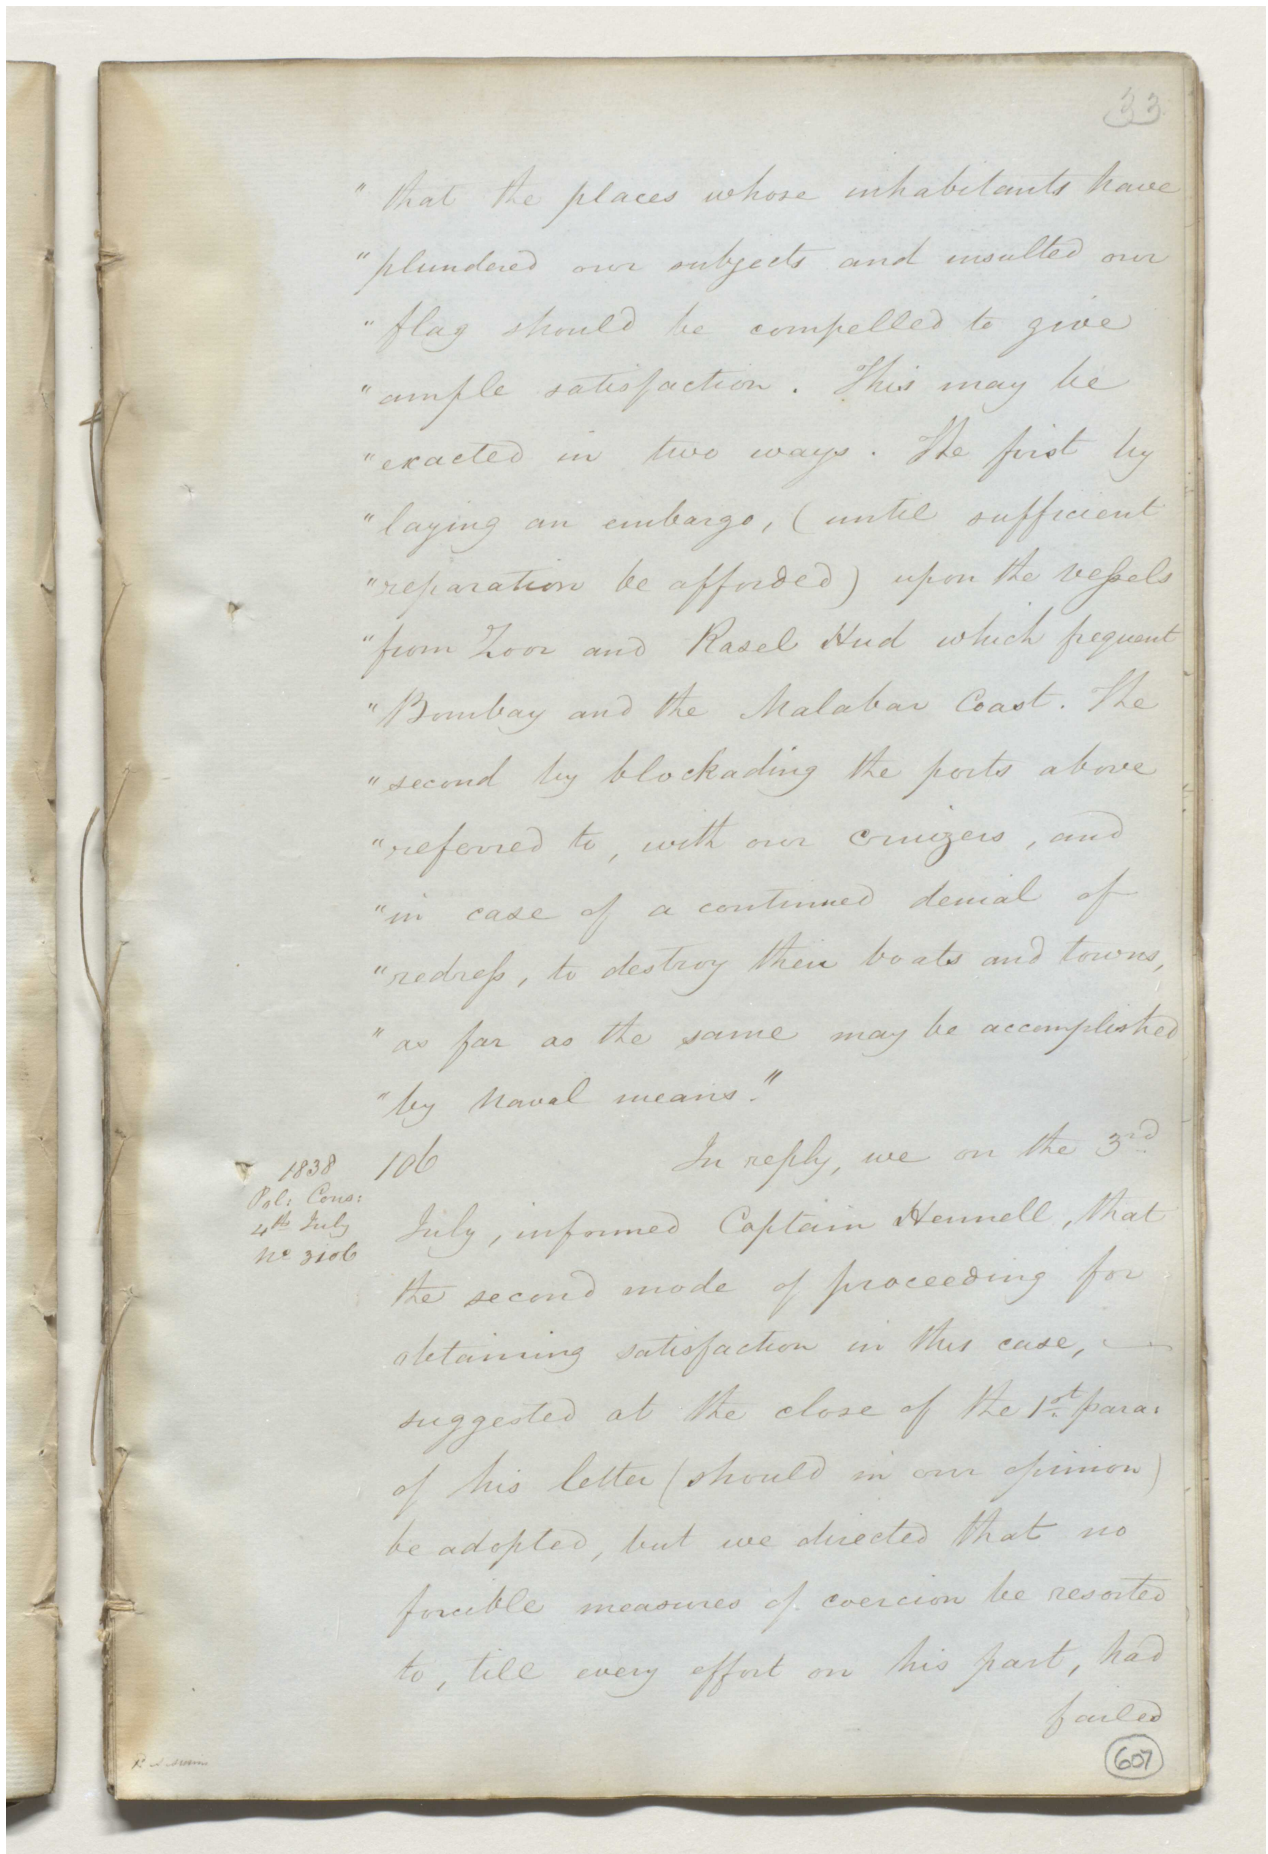 33
" that the places whose inhabitants have
" plundered our subjects and insulted our
" flag should be compelled to give
" ample satisfaction. This may be
" exacted in two ways. The first by
" laying an embargo, (until sufficient
" reparation be afforded) upon the vessels
" from Zoor and Rasel Hud which frequent
" Bombay and the Malabar Coast. The
" second by blockading the ports above
" referred to, with our cruizers, and
" in case of a continued denial of
" redress, to destroy their boats and towns,
" as far as the same may be accomplished
" by Naval means."
106 In reply, we on the 3rd
1838
Pol: Cons:
4th July
No 3106
July, informed Captain Hennell, that
the second mode of proceeding for
obtaining satisfaction in this case,
suggested at the close of the 1st para:
of his letter (should in our opinion)
be adopted, but we directed that no
forcible measures of coercion be resorted
to, till every effort on his part, had
failed
607